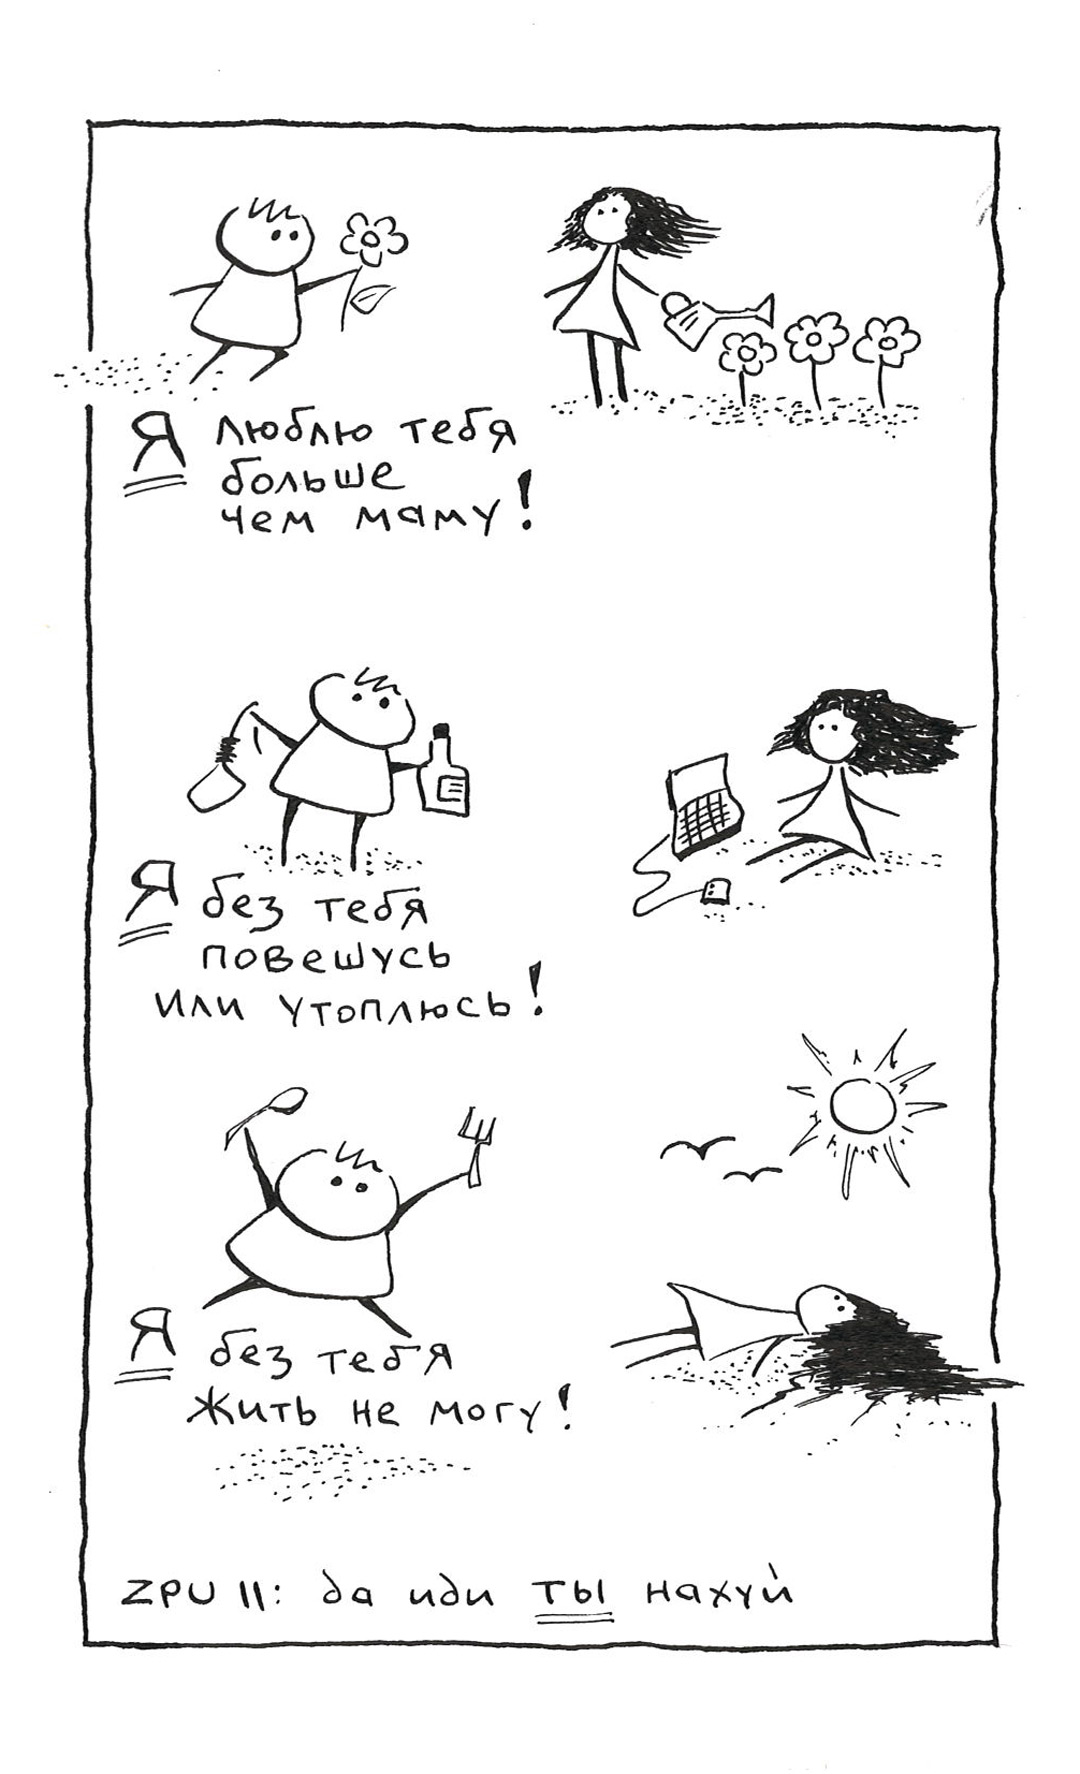 Я люблю тебя
больше
чем маму!
Я без тебя
повешусь
или утоплюсь!
Я без тебя
жить не могу!
ZPU II: да иди ты нахуй